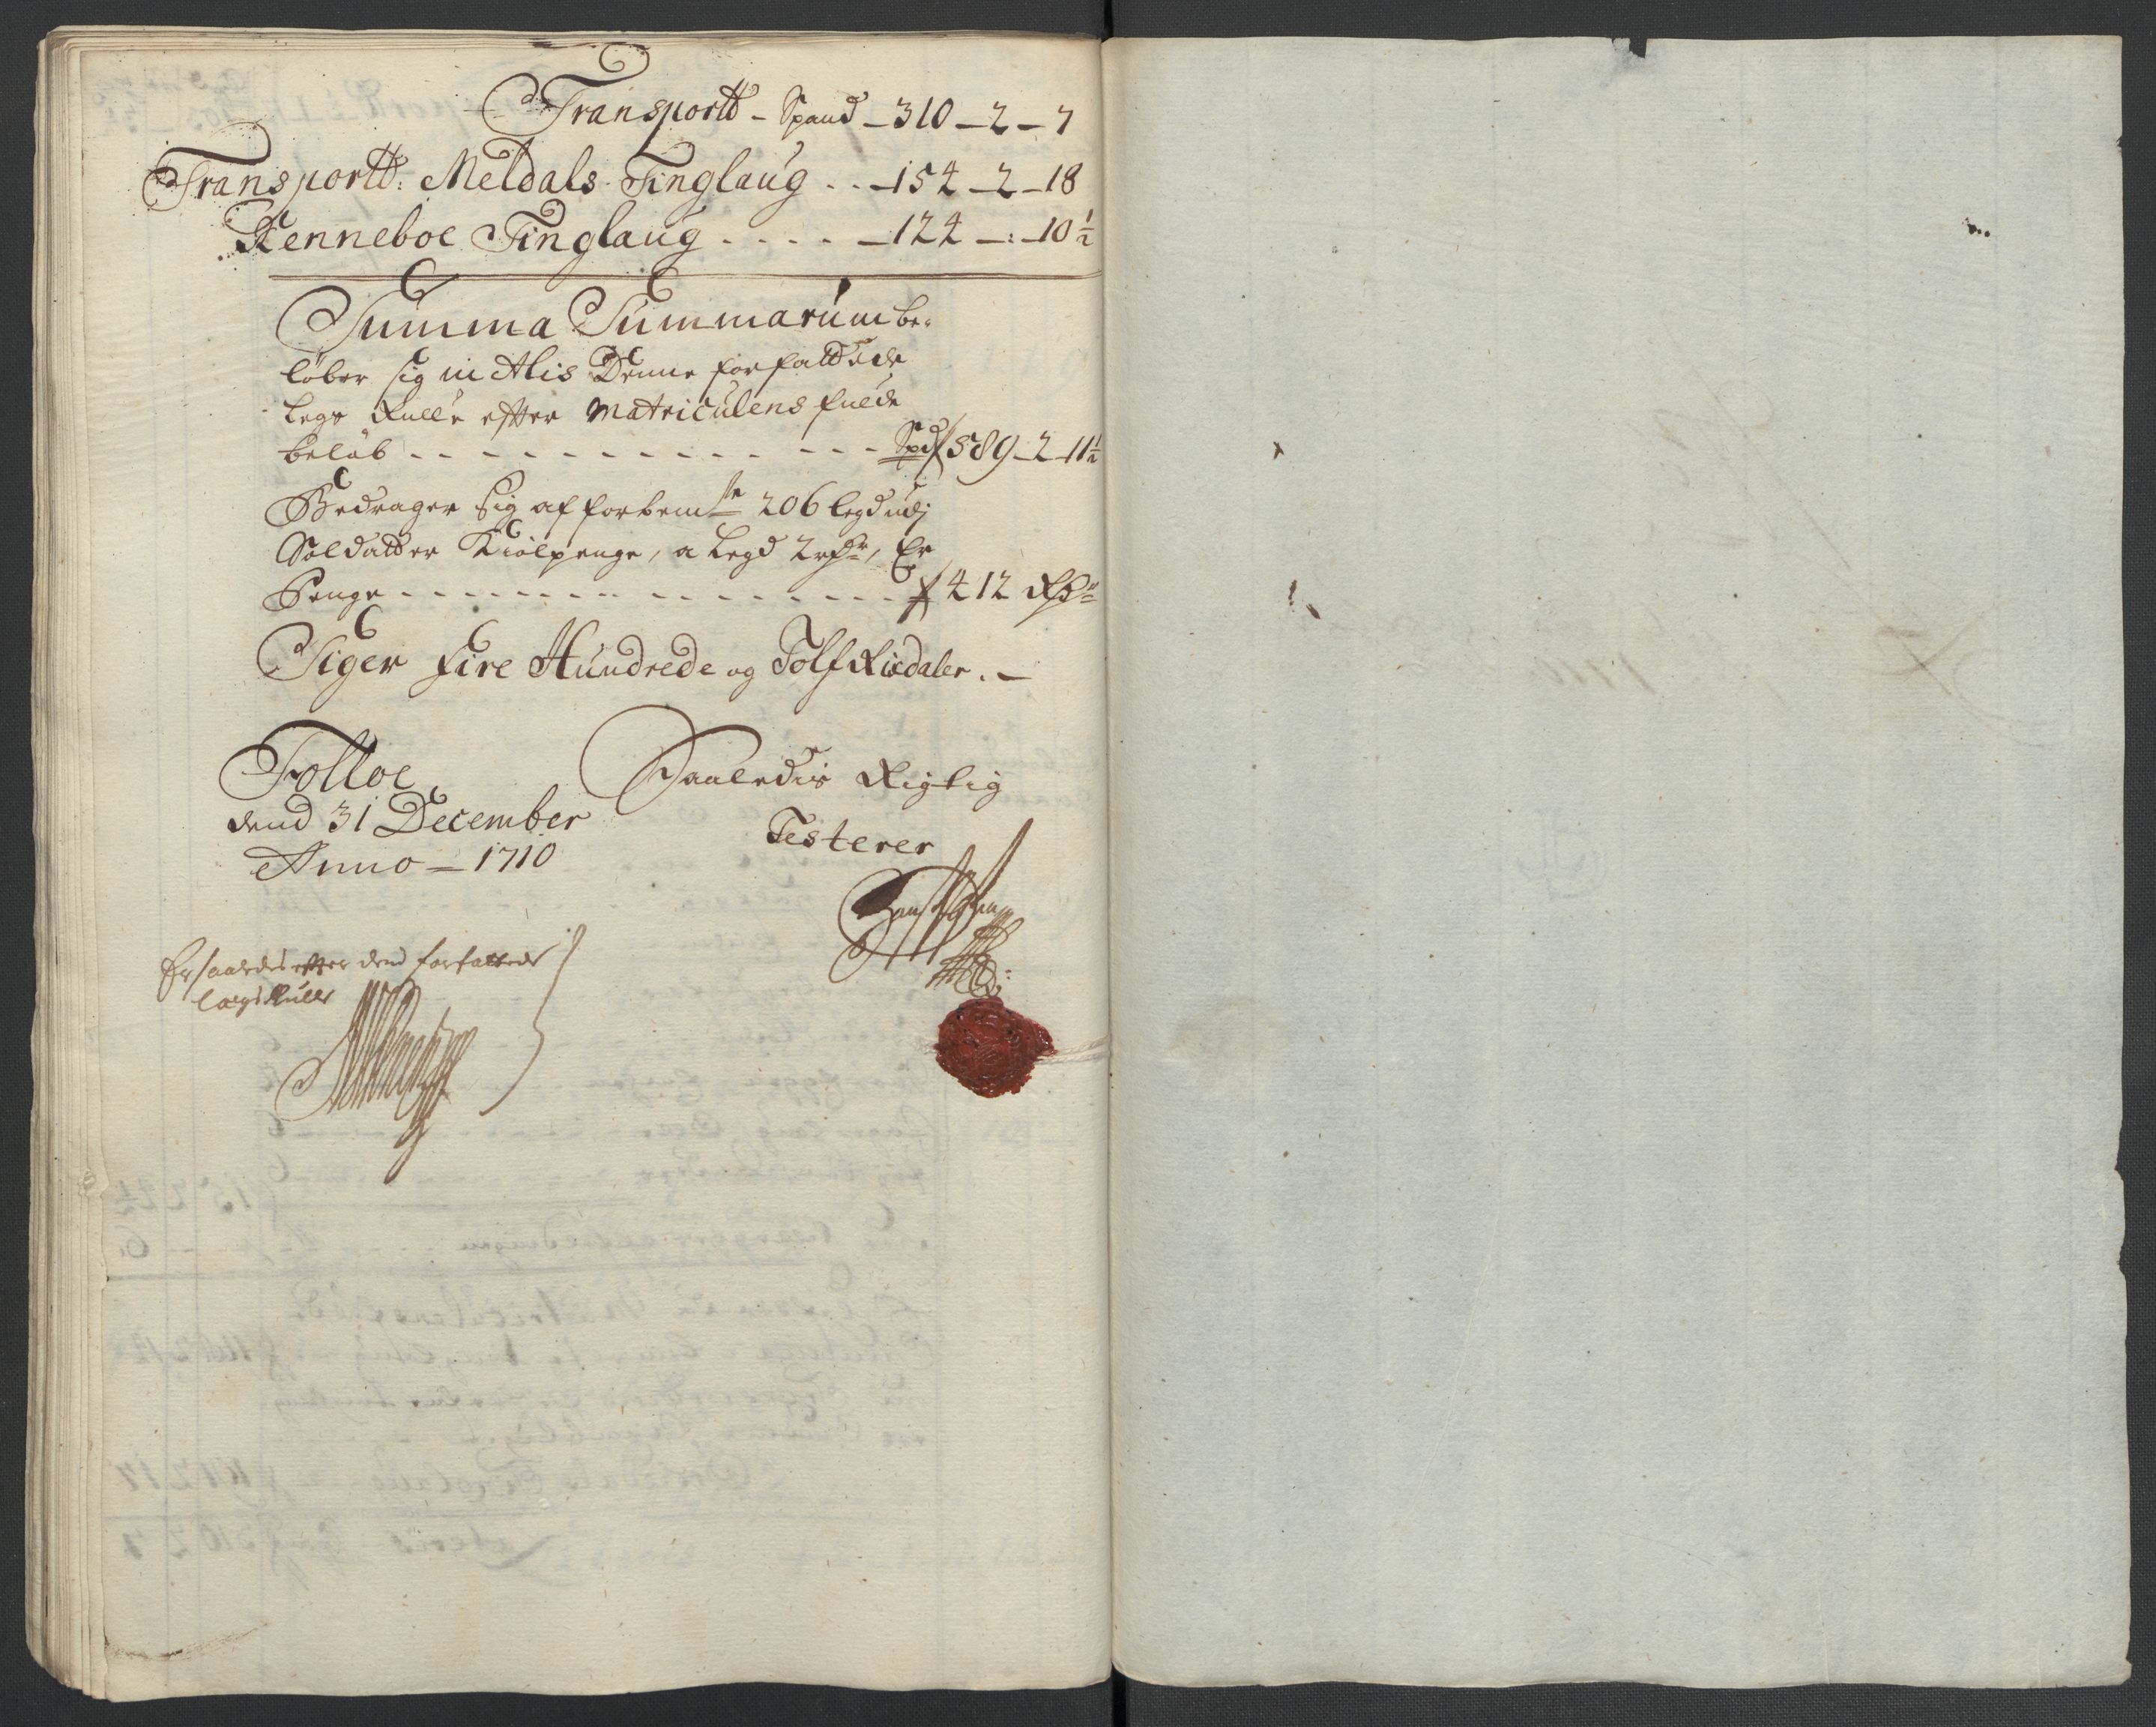 Transportt - Spand - 310 - 2 - 7
Transportt: Meldals Tinglaug . . - 154 - 2 - 18
Renneboe Tinglaug . . . . - 124 - : - 10 1/2
Summa Summarum be-
løber sig Denne forfattede
Legs Rulle efter Matriculens fulde
beløb - - - - - - - - - - - - Spd 589 - 2 - 11 1/2
Bedrager sig af forbemte 206 legd udj
Soldatter Kiolpenge, a Legd 2 rdr, Er
Penge - - - - - - - - - - - - 412 Rdr
Siger fire Hundrede og Tolf Rixdaler. -
Folloe
dend 31 December
Anno - 1710
Saaledis Rigtig
Testerer
Er saaledis efter dend forfattede
lægs Rulle